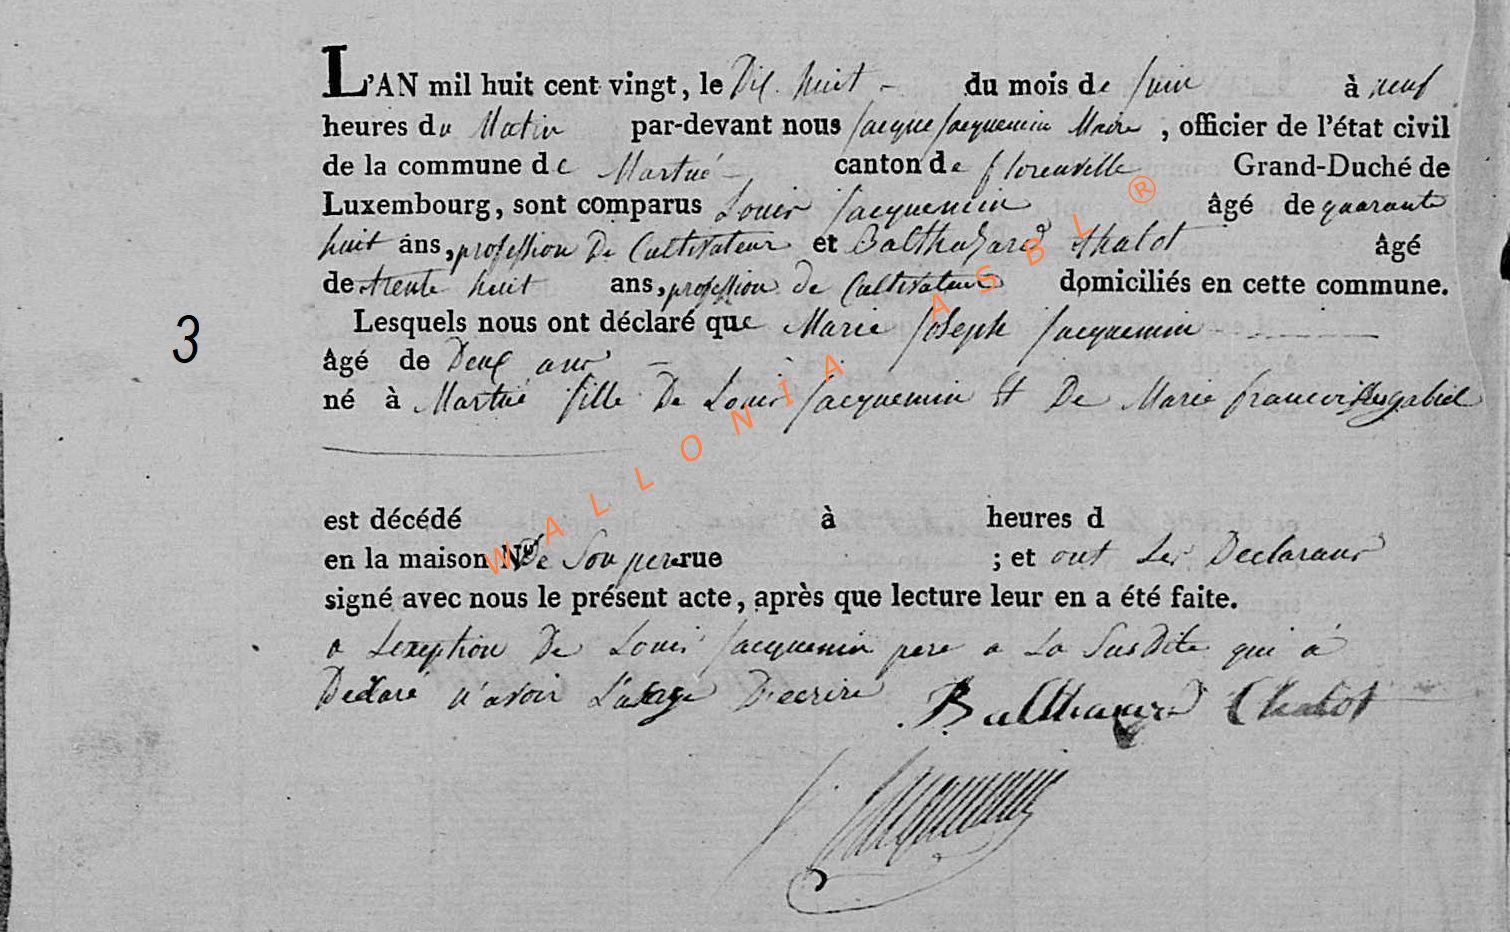 L'AN mil huit cent vingt, le Dix huit - du mois de Juin à neuf
heures du Matin par-devant nous Jacque Jacquemin Maire, officier de l'état civil
de la commune de Martué - canton de florenville Grand-Duché de
Luxembourg, sont comparus Louis Jacquemin âgé de quarante
huit ans, profession De Cultivateur et Balthazard Chalot âgé
de trente huit ans, profession de Cultivateur domiciliés en cette commune.
Lesquels nous ont déclaré que Marie Joseph Jacquemin
3
âgé de Deux ans -
né à Martué fille De Louis Jacquemin Et De Marie francoise
est décédé à heures d
en la maison De Son pere rue ; et ont Les Declarans
signé avec nous le présent acte, après que lecture leur en a été faite.
a Lexeption De Louis Jacquemin pere a La Susdite qui á
Declaré n'avoir L'usage D'ecrire Balthazard Chalot
Jacquemin
WALLONIA ASBL ®